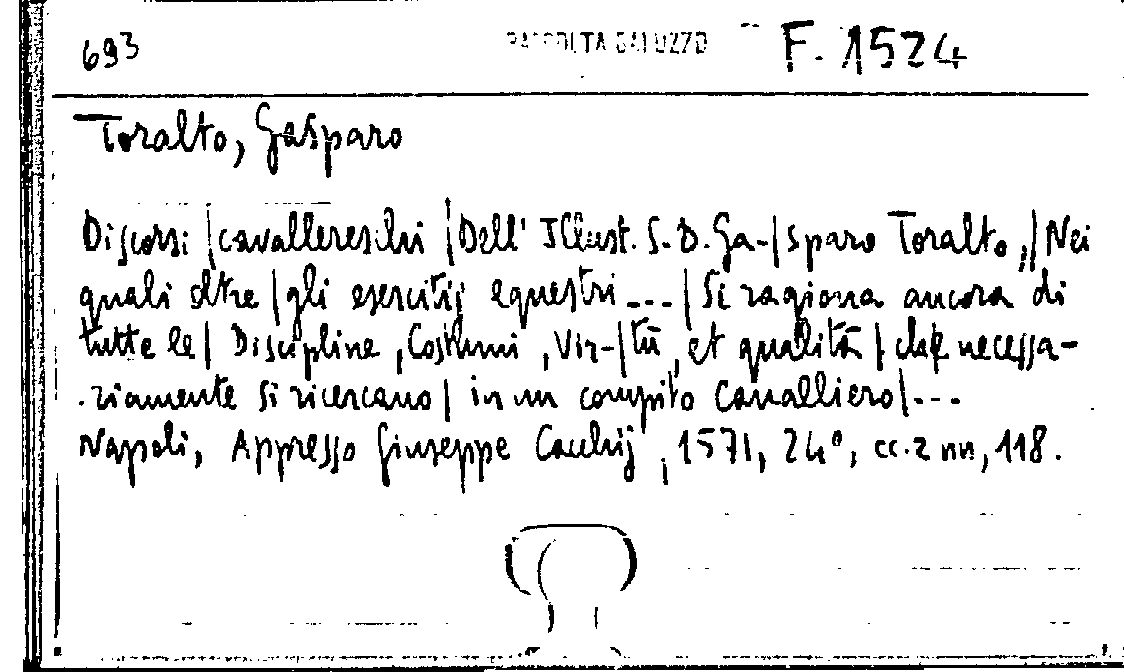 693 RACCOLTA SALUZZO F. 1524
Toralto, Gasparo
Discorsi | cavallereschi | Dell' Illust. S. D. Ga-| sparo Toralto, | Nei
quali oltre | gli esercitij equestri ... | Si ragiona ancora di
tutte le | Discipline, Costumi, Vir-| tù, et qualità | che necessa-
riamente si ricercano | in un compito Cavalliero | ...
Napoli, Appresso Giuseppe Cacchij, 1571, 24°, cc. 2 nn, 118.